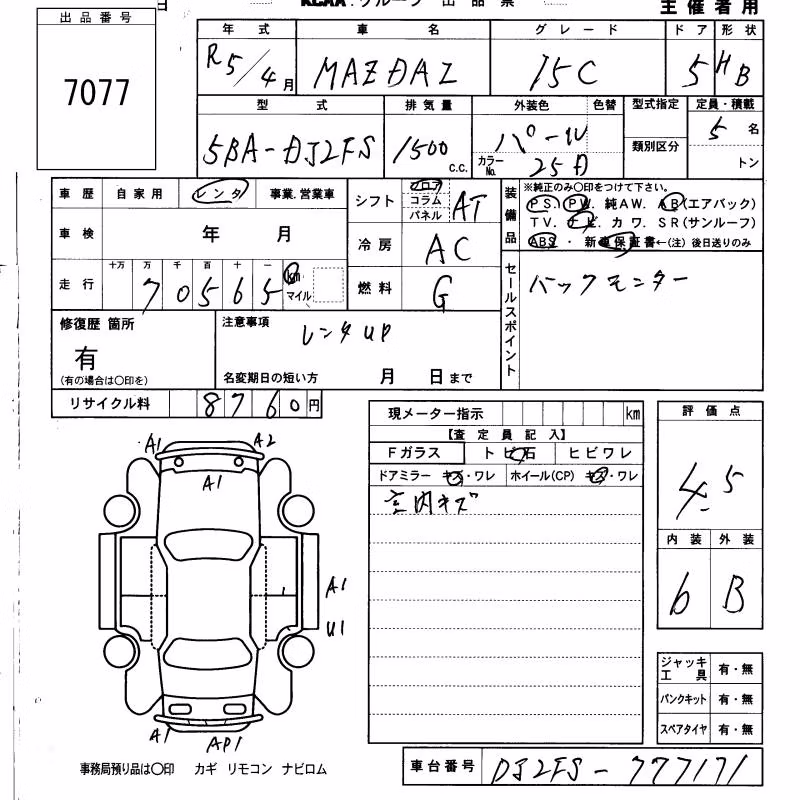 出品番号
7077
主催者用
年式 車名 グレード ドア 形状
R5/4月 MAZDA2 15C 5 HB
型式 排気量 外装色 色替 型式指定 定員・積載
5BA-DJ2FS 1500 c.c. パール 5名
カラーNo. 25D 類別区分 トン
車歴 自家用 レンタ 事業.営業車
シフト フロア コラム パネル AT
装備品
※純正のみ〇印をつけて下さい。
PS. PW. 純AW. AB(エアバック)
TV. ナビ. カワ. SR(サンルーフ)
ABS・新車保証書←(注)後日送りのみ
車検 年 月
冷房 AC
走行 十万 万 千 百 十 一
70565 km マイル
燃料 G
セールスポイント
バックモニター
修復歴 箇所
有
(有の場合は〇印を)
注意事項
レンタUP
名変期日の短い方 月 日まで
リサイクル料 8760円
現メーター指示 km
【査定員記入】
Fガラス トビ石 ヒビワレ
ドアミラー キズ・ワレ ホイール(CP) キズ・ワレ
室内キズ
評価点
4.5
内装 外装
6 B
A1 A2
A1
A1
U1
A1 AP1
ジャッキ工具 有・無
パンクキット 有・無
スペアタイヤ 有・無
事務局預り品は〇印 カギ リモコン ナビロム
車台番号 DJ2FS-777171